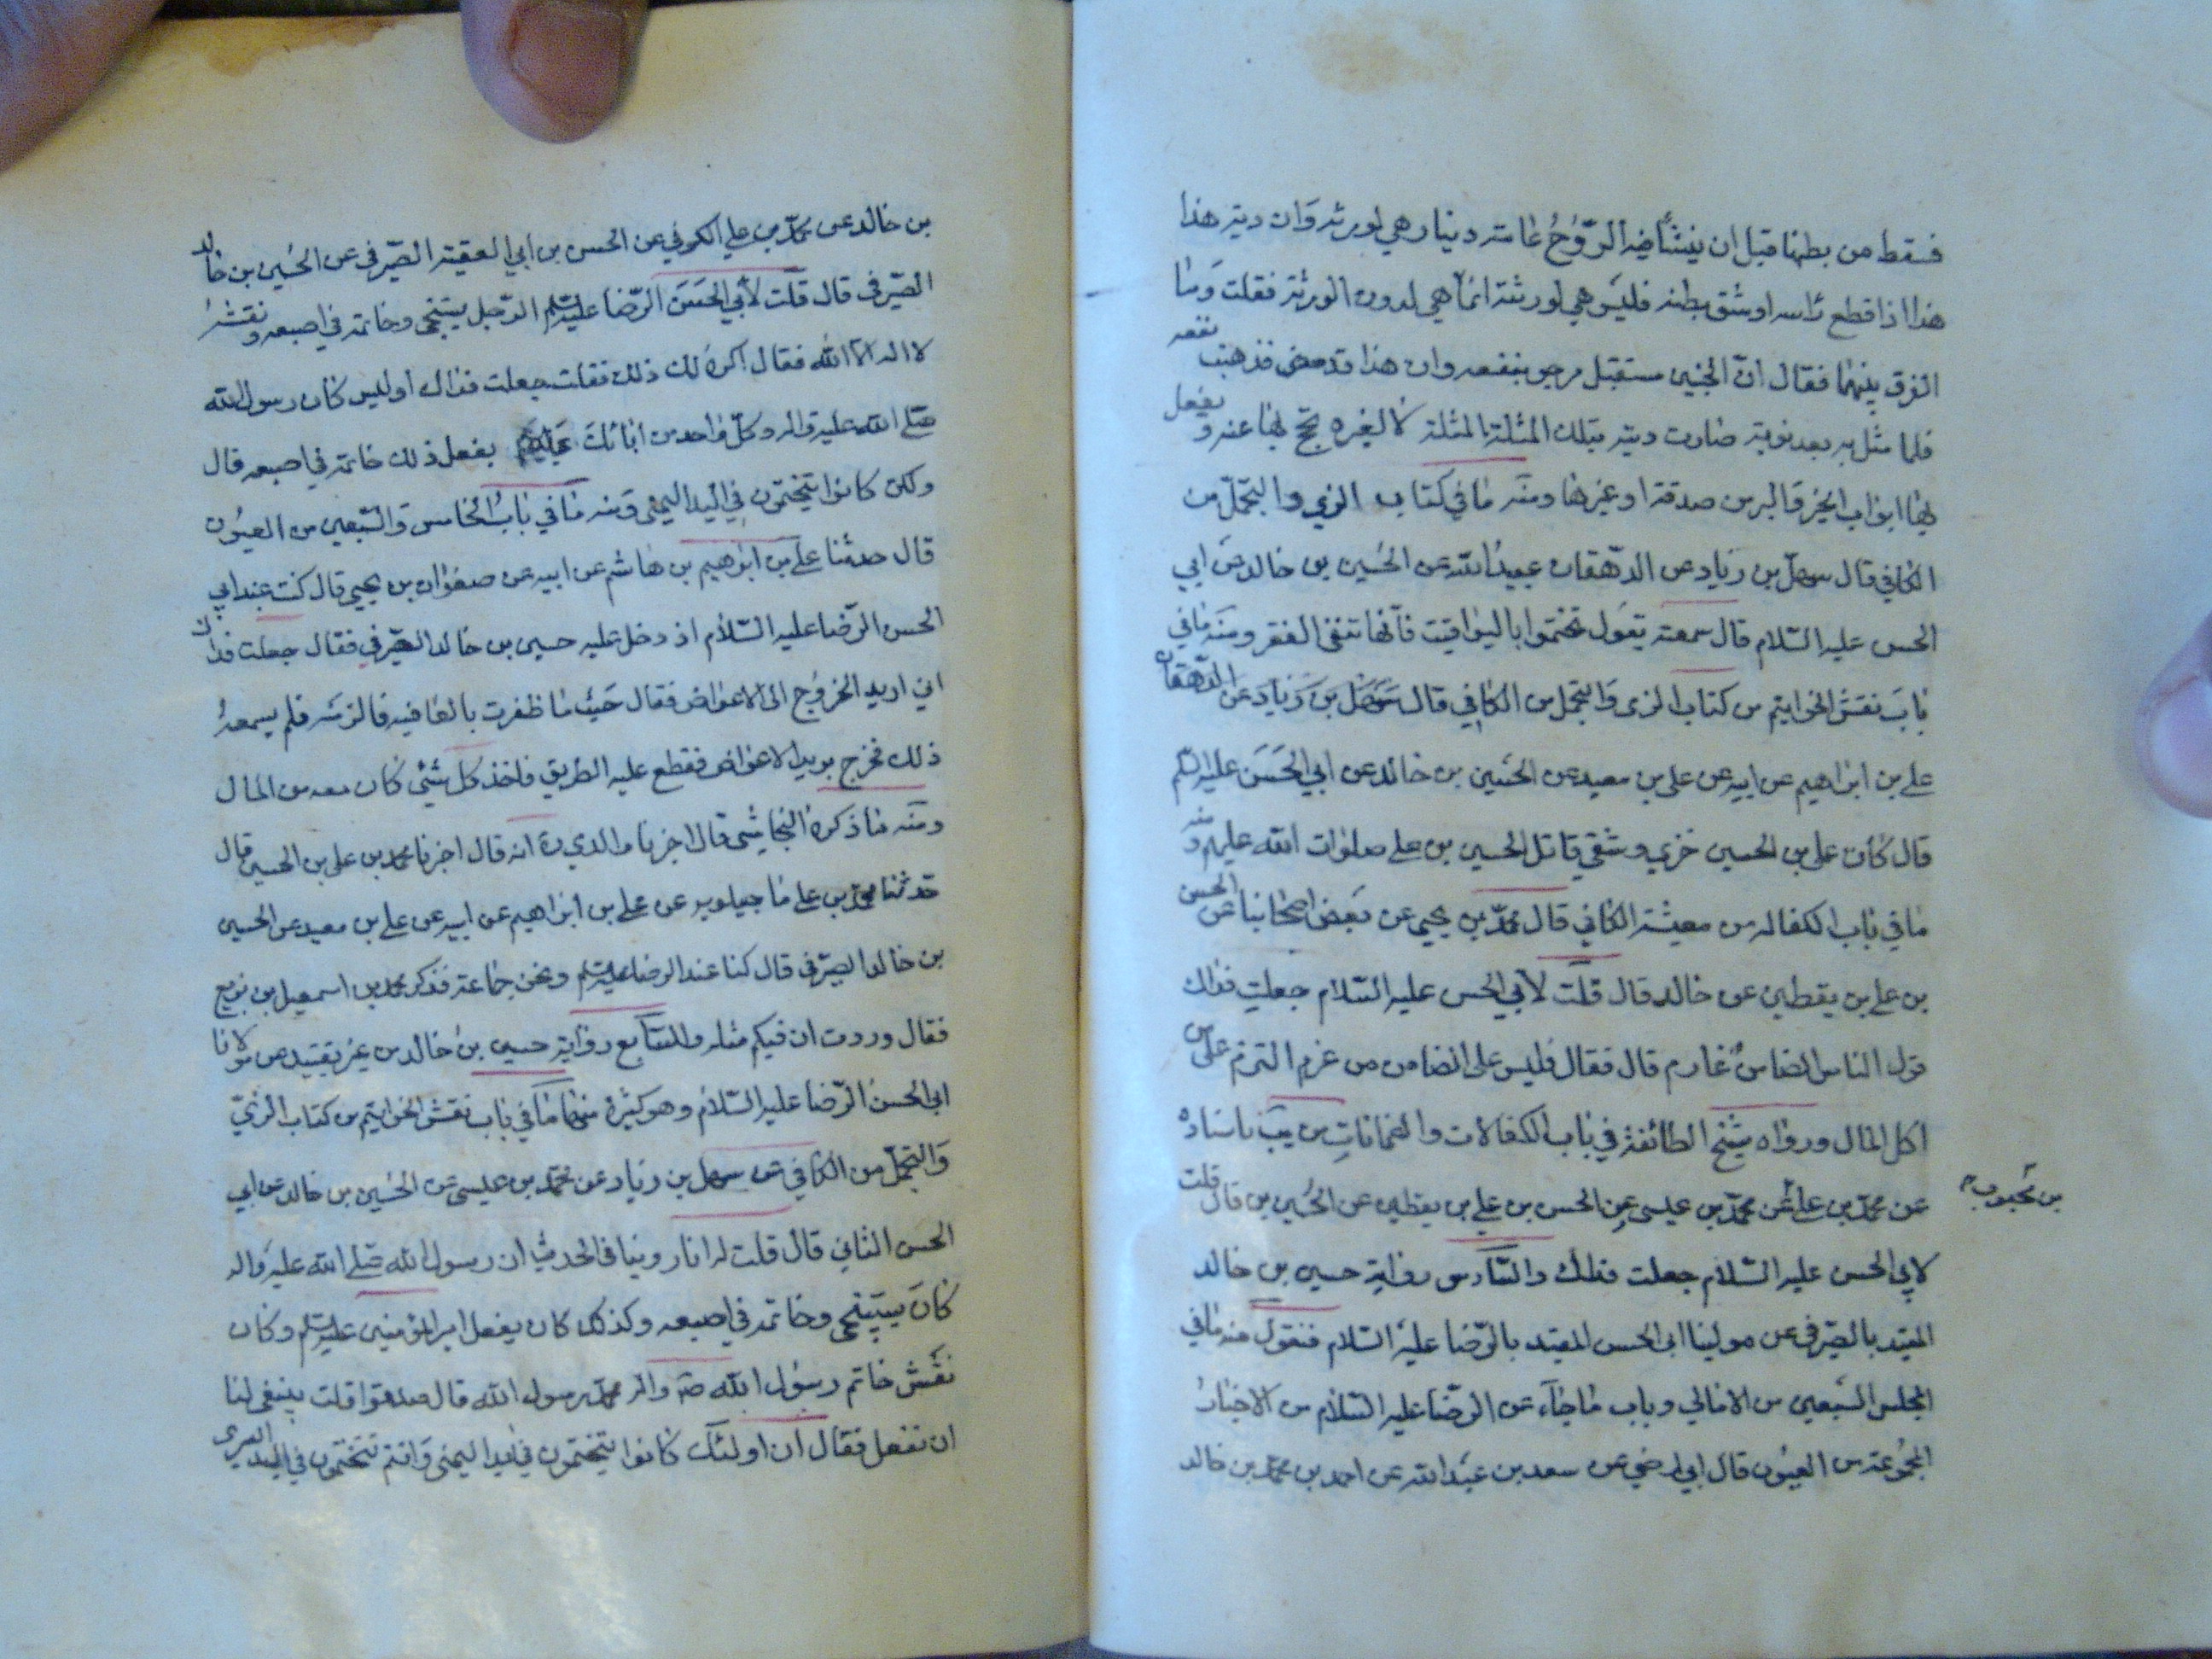 فسقط من بطنها قبل ان ينشأ فيه الروح مائة دينار هي لورثته وان دية هذا
هذا اذا قطع راسه او شق بطنه فليس هي لورثته انما هي له دون الورثة فقلت وما
الفرق بينهما فقال ان الجنين مستقبل مرجو نفعه وان هذا قد مضى فذهبت نفعه
فلما مثل به بعد موته صارت ديته بتلك المثلة المثلة لا لغيره يحج بها عنه ويفعل
بها ابواب الخير والبر من صدقة او غيرها ومنه ما في كتاب الزي والتجمل من
الكافي قال سهل بن زياد عن الدهقان عبيد الله عن الحسين بن خالد عن ابي
الحسن عليه السلام قال سمعته يقول تختموا باليواقيت فانها تنفى الفقر ومنه ما في
باب نقش الخواتيم من كتاب الزي والتجمل من الكافي قال سهل بن زياد عن الدهقان
علي بن ابراهيم عن ابيه عن علي بن معبد عن الحسين بن خالد عن ابي الحسن عليه السلم
قال كان على بن الحسين خزي وشقي قاتل الحسين بن علي صلوات الله عليهم ومنه
ما في باب الكفالة من معيشة الكافي قال محمد بن يحيى عن بعض اصحابنا عن الحسن
بن علي بن يقطين عن خالد قال قلت لابي الحسن عليه السلام جعلت فداك
قول الناس الضامن غارم قال فقال ليس على الضامن من غرم الغرم على من
اكل المال ورواه شيخ الطائفة في باب الكفالات والضمانات من يب باسناده
عن محمد بن علي بن محبوب عن محمد بن عيسى عن الحسن بن علي بن يقطين عن الحسين بن قال قلت
لابي الحسن عليه السلام جعلت فداك والسادس رواية حسين بن خالد
المقيد بالصيرفى عن مولينا ابى الحسن المقيد بالرضا عليه السلام فنقول منه ما في
المجلس السبعين من الامالي وباب ما جاء عن الرضا عليه السلام من الاخبار
المجموعة من العيون قال ابي رضي عن سعد بن عبد الله عن احمد بن محمد بن خالد
بن خالد عن محمد بن علي الكوفي عن الحسن بن ابي العقبة الصيرفى عن الحسين بن خالد
الصيرفى قال قلت لأبي الحسن الرضا عليه السلم الرجل يستنجى وخاتمه في اصبعه ونقشه
لا اله الا الله فقال اكره لك ذلك فقلت جعلت فداك أوليس كان رسول الله
صلى الله عليه واله وكل واحد من ابائك يفعل ذلك خاتمه في اصبعه قال
ولكن كانوا يتختمون في اليد اليمنى ومنه ما في باب الخامس والسبعين من العيون
قال حدثنا علي بن ابراهيم بن هاشم عن ابيه عن صفوان بن يحيى قال كنت عند ابي
الحسن الرضا عليه السلام اذ دخل عليه حسين بن خالد الصيرفي فقال جعلت فداك
اني اريد الخروج الى الاعواض فقال حيث ما ظفرت بالعافيه فالزمه فلم يسمعه
ذلك فخرج يريد الاعواض فقطع عليه الطريق فاخذ كل شئ كان معه من المال
ومنه ما ذكره النجاشى قال اخبرنا والدي ره انه قال اخبرنا محمد بن علي بن الحسين قال
حدثنا محمد بن علي ماجيلويه عن علي بن ابراهيم عن ابيه عن علي بن معبد عن الحسين
بن خالد الصيرفى قال كنا عند الرضا عليه السلم ونحن جماعة فذكر محمد بن اسمعيل بن بزيع
فقال وددت ان فيكم مثله والسابع رواية حسين بن خالد من غير تقييد عن مولانا
ابى الحسن الرضا عليه السلام وهو كثيرة منها ما في باب نقش الخواتيم من كتاب الزي
والتجمل من الكافي عن سهل بن زياد عن محمد بن عيسى عن الحسين بن خالد عن ابي
الحسن الثاني قال قلت له انا روينا في الحديث ان رسول الله صلى الله عليه واله
كان يستنجى وخاتمه في اصبعه وكذلك كان يفعل امير المؤمنين عليه السلم وكان
نقش خاتم رسول الله ص واله محمد رسول الله قال صدقوا قلت ينبغى لنا
ان نفعل فقال ان اولئك كانوا يتختمون في اليد اليمنى وانتم تتختمون في اليد اليسرى